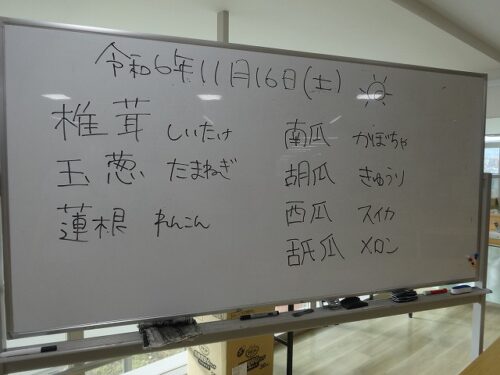 令和6年11月16日(土)
椎茸 しいたけ
玉葱 たまねぎ
蓮根 れんこん
南瓜 かぼちゃ
胡瓜 きゅうり
西瓜 スイカ
舐瓜 メロン